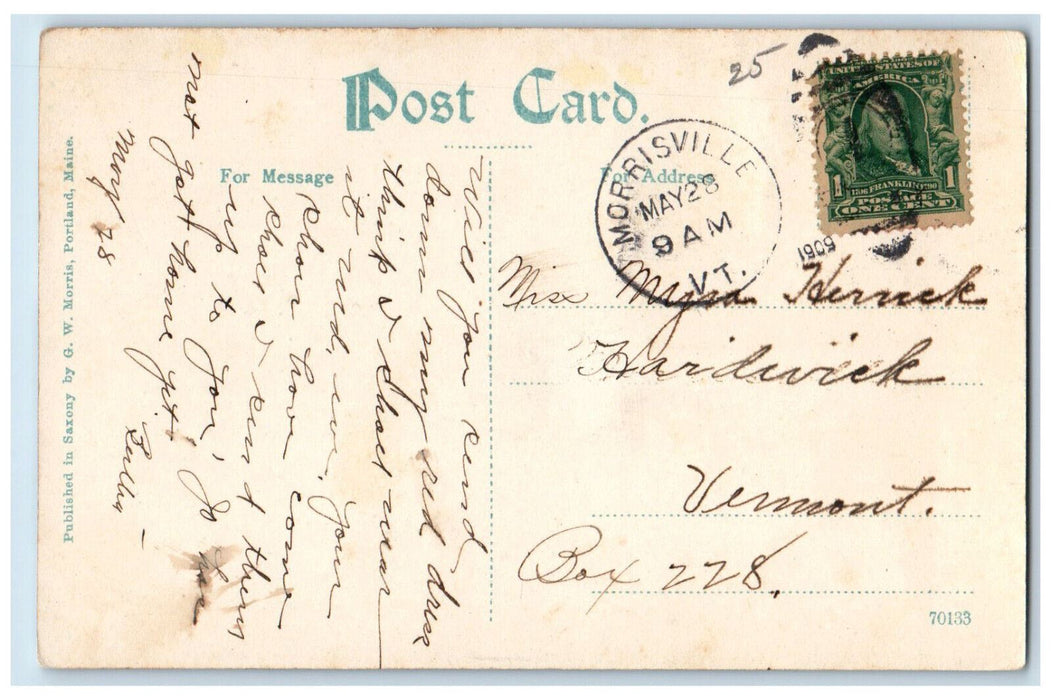 Post Card.
25
UNITED STATES OF
AMERICA
1 1706 FRANKLIN 1790 1
POSTAGE
ONE CENT
MORRISVILLE
MAY 28
9 AM
VT.
1909
For Message
For Address
Will you send
down my red dress
think I shall wear
it and, were your
shoes have come
shall I send them
up to you,
not got home yet.
May 28
Miss Myra Herrick
Hardwick
Vermont.
Box 228.
Published in Saxony by G. W. Morris, Portland, Maine.
70133